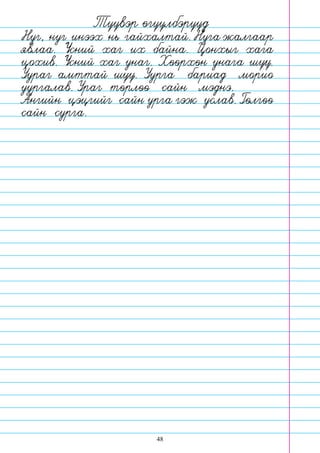 Түүвэр өгүүлбэрүүд
Нүг, нүг инээх нь гайхалтай. Нуга жалгаар
явлаа. Үсний хаг их байна. Цонхыг хага
цохив. Үсний хаг унаг. Хөөрхөн унага шүү.
Уураг амттай шүү. Уурга бариад морио
уургалав. Ураг төрлөө сайн мэднэ.
Ангийн цэцгийг сайн урга гэж услав. Гөлгөө
сайн сурга.
48